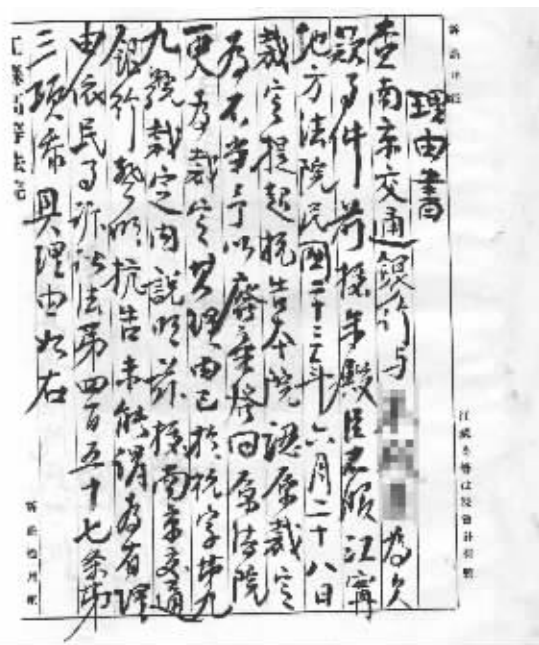 理由書
查南京交通銀行与 為欠
款事件前據朱殿臣不服江寧
地方法院民國二十三年六月二十八日
裁定提起抗告本院認原裁定
為不當予以廢棄發回原法院
更為裁定其理由已於抗字第九
九號裁定內說明茲據南京交通
銀行聲明抗告未能謂為有理
由依民事訴訟法第四百五十七條第
三項添具理由如右
江蘇高等法院